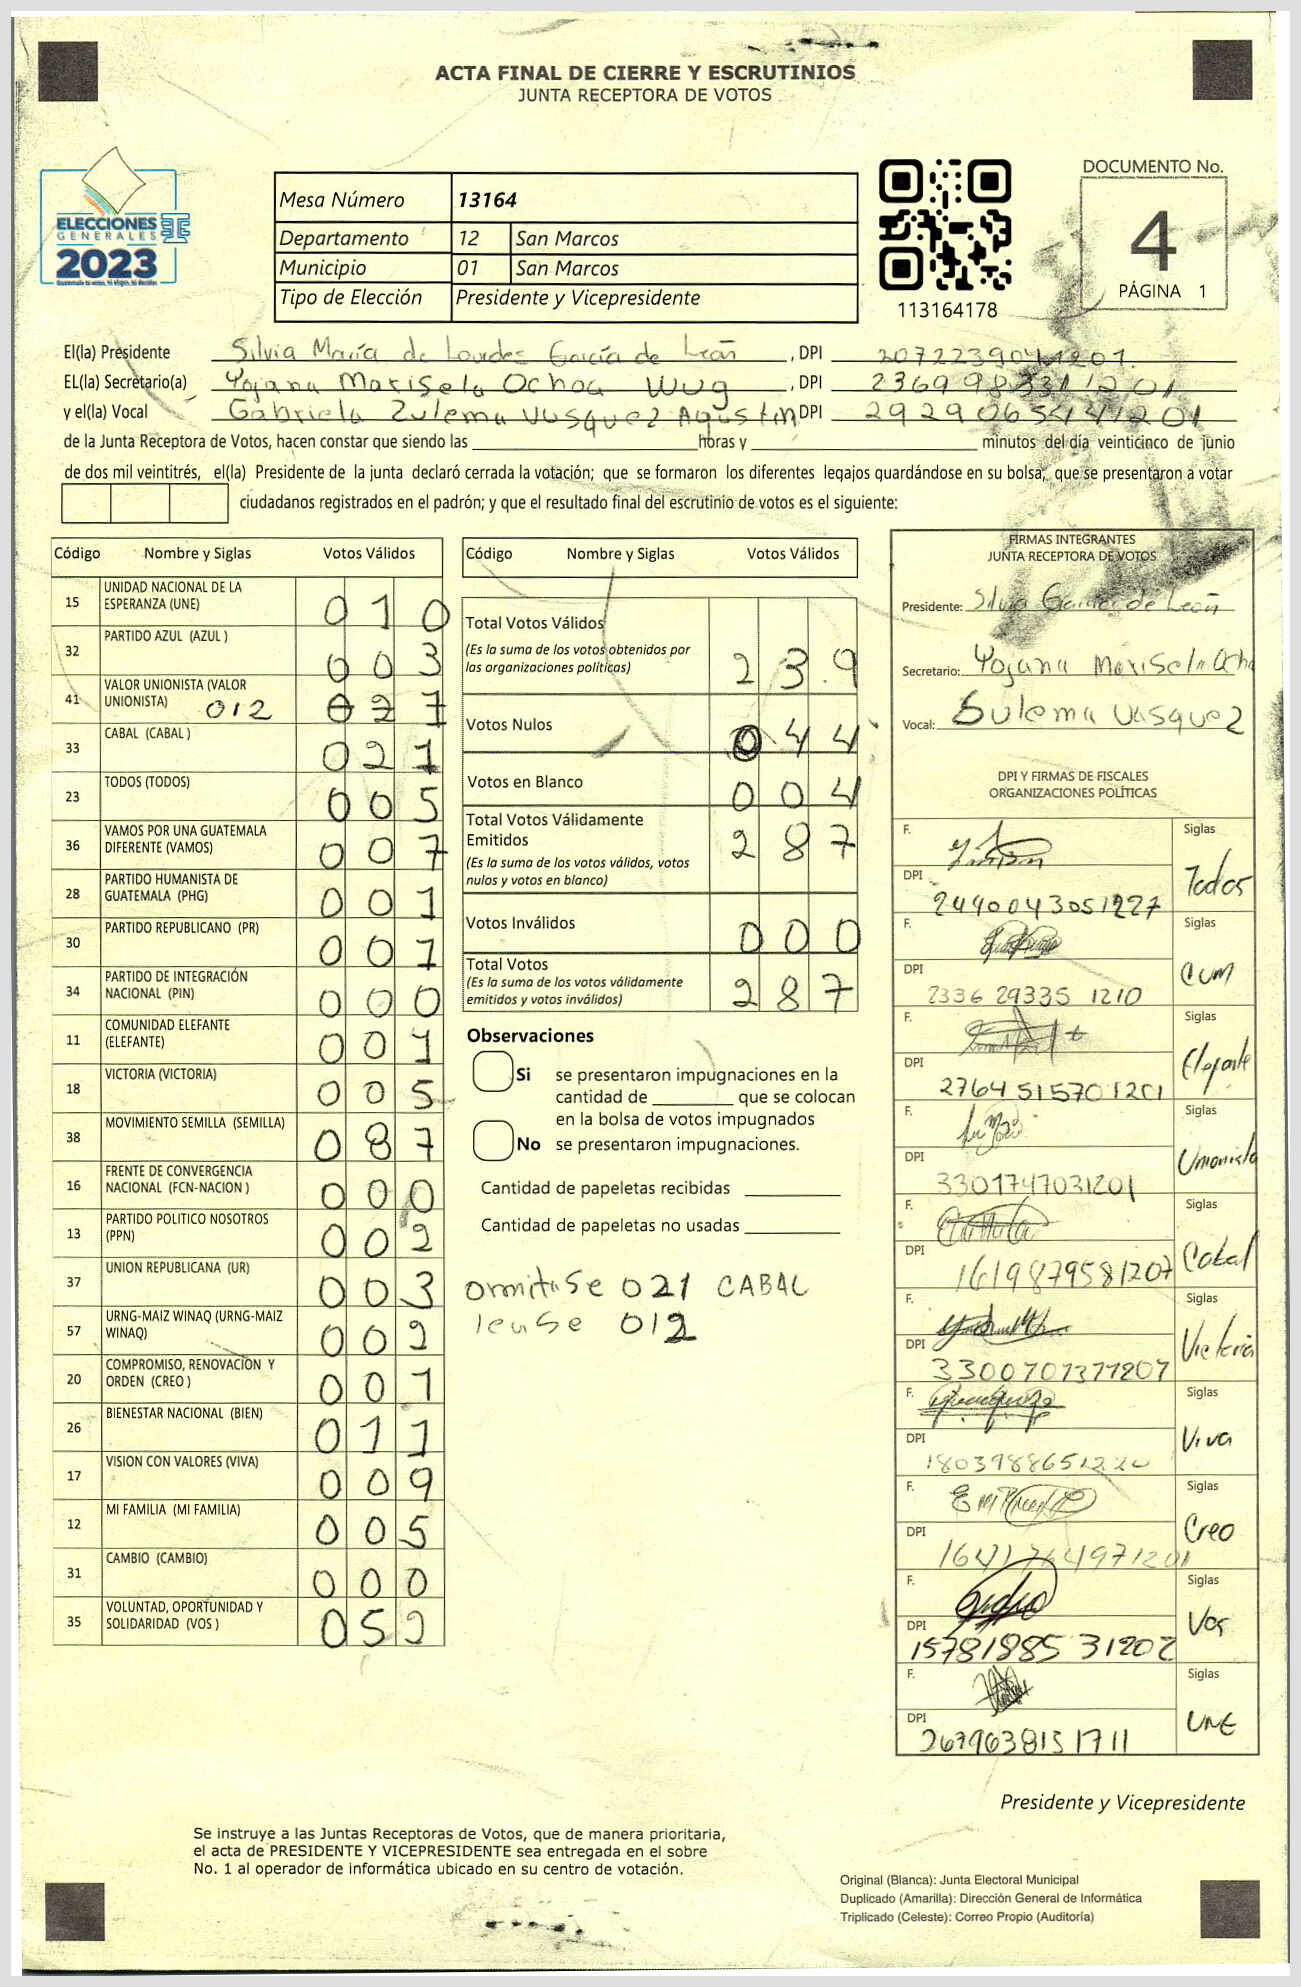 ACTA FINAL DE CIERRE Y ESCRUTINIOS
JUNTA RECEPTORA DE VOTOS
ELECCIONES
GENERALES
2023
Mesa Número 13164
Departamento 12 San Marcos
Municipio 01 San Marcos
Tipo de Elección Presidente y Vicepresidente
113164178
DOCUMENTO No.
4
PÁGINA 1
El(la) Presidente Silvia María de Lourdes García de León , DPI
EL(la) Secretario(a) Yojana Marisela Ochoa Wug , DPI
y el(la) Vocal Gabriela Zulema Vasquez Agustin DPI
de la Junta Receptora de Votos, hacen constar que siendo las horas y minutos del día veinticinco de junio
de dos mil veintitrés, el(la) Presidente de la junta declaró cerrada la votación; que se formaron los diferentes legajos guardándose en su bolsa, que se presentaron a votar
ciudadanos registrados en el padrón; y que el resultado final del escrutinio de votos es el siguiente:
Código Nombre y Siglas Votos Válidos
15 UNIDAD NACIONAL DE LA ESPERANZA (UNE) 010
32 PARTIDO AZUL (AZUL ) 003
41 VALOR UNIONISTA (VALOR UNIONISTA) 012 027
33 CABAL (CABAL ) 021
23 TODOS (TODOS) 005
36 VAMOS POR UNA GUATEMALA DIFERENTE (VAMOS) 007
28 PARTIDO HUMANISTA DE GUATEMALA (PHG) 001
30 PARTIDO REPUBLICANO (PR) 001
34 PARTIDO DE INTEGRACIÓN NACIONAL (PIN) 000
11 COMUNIDAD ELEFANTE (ELEFANTE) 001
18 VICTORIA (VICTORIA) 005
38 MOVIMIENTO SEMILLA (SEMILLA) 087
16 FRENTE DE CONVERGENCIA NACIONAL (FCN-NACION ) 000
13 PARTIDO POLITICO NOSOTROS (PPN) 002
37 UNION REPUBLICANA (UR) 003
57 URNG-MAIZ WINAQ (URNG-MAIZ WINAQ) 002
20 COMPROMISO, RENOVACIÓN Y ORDEN (CREO ) 001
26 BIENESTAR NACIONAL (BIEN) 011
17 VISION CON VALORES (VIVA) 009
12 MI FAMILIA (MI FAMILIA) 005
31 CAMBIO (CAMBIO) 000
35 VOLUNTAD, OPORTUNIDAD Y SOLIDARIDAD (VOS ) 052
Código Nombre y Siglas Votos Válidos
Total Votos Válidos
(Es la suma de los votos obtenidos por
las organizaciones políticas) 239
Votos Nulos 044
Votos en Blanco 004
Total Votos Válidamente
Emitidos 287
(Es la suma de los votos válidos, votos
nulos y votos en blanco)
Votos Inválidos 000
Total Votos
(Es la suma de los votos válidamente
emitidos y votos inválidos) 287
Observaciones
Si se presentaron impugnaciones en la
cantidad de que se colocan
en la bolsa de votos impugnados
No se presentaron impugnaciones.
Cantidad de papeletas recibidas
Cantidad de papeletas no usadas
ormitase 021 CABAL
lease 012
FIRMAS INTEGRANTES
JUNTA RECEPTORA DE VOTOS
Presidente: Silvia García de León
Secretario: Yojana Marisela Ocho
Vocal: Sulema Vasquez
DPI Y FIRMAS DE FISCALES
ORGANIZACIONES POLÍTICAS
F. Siglas
DPI 2490043051227 Todos
F. Siglas
DPI 2336 29335 1210 CUM
F. Siglas
DPI 2764515701201 Elefante
F. Siglas
DPI 3301747031201 Unionista
F. Siglas
DPI 1619879581207 Cabal
F. Siglas
DPI 3300707371207 Victoria
F. Siglas
DPI Viva
F. Siglas
DPI 1641764971201 Creo
F. Siglas
DPI 15781885 31202 Vos
F. Siglas
DPI 2679638151711 UNE
Presidente y Vicepresidente
Se instruye a las Juntas Receptoras de Votos, que de manera prioritaria,
el acta de PRESIDENTE Y VICEPRESIDENTE sea entregada en el sobre
No. 1 al operador de informática ubicado en su centro de votación.
Original (Blanca): Junta Electoral Municipal
Duplicado (Amarilla): Dirección General de Informática
Triplicado (Celeste): Correo Propio (Auditoría)